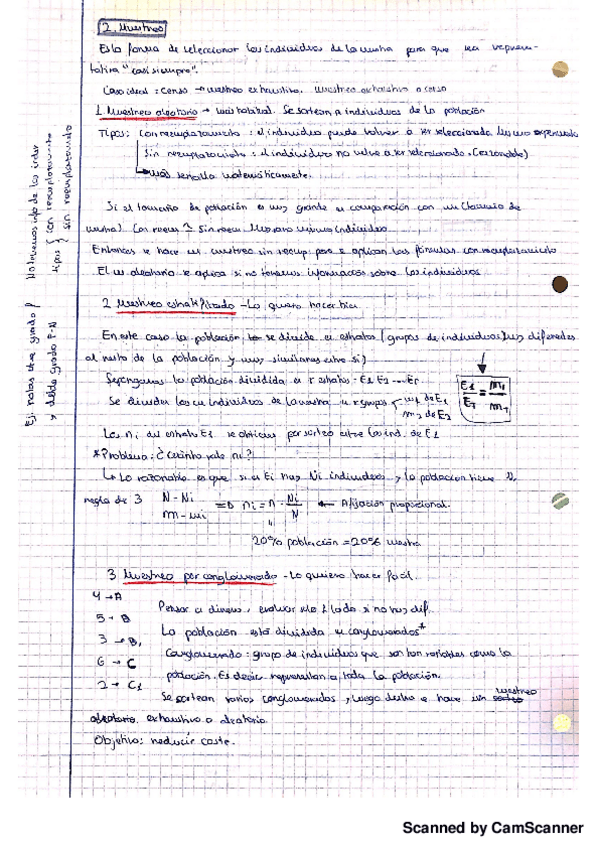 2. Muestreo
Es la forma de seleccionar los individuos de la muestra para que sea represen-
tativa "casi siempre".
Caso ideal: censo → muestreo exhaustivo. Muestreo exhaustivo o censo
1 Muestreo aleatorio → más habitual. Se sortean a individuos de la población
Tipos: Con reemplazamiento: el individuo puede volver a ser seleccionado.
Sin reemplazamiento: el individuo no vuelve a ser seleccionado. (razonable)
más sencilla matemáticamente.
Si el tamaño de población es muy grande en comparación con un tamaño de
muestra) Con reem ≈ Sin reem
Entonces se hace un muestreo sin recup. pero se aplican las fórmulas con reemplazamiento
El m aleatorio se aplica si no tenemos información sobre los individuos
No tenemos info de los indev
tipos { con reemplazamiento
sin reemplazamiento
2 Muestreo estratificado - Lo quiero hacer bien
En este caso la población se divide en estratos (grupos de individuos muy diferentes
al resto de la población y muy similares entre sí)
Supongamos la población dividida en r estratos: E1 E2 ... Er.
Se dividen los n individuos de la muestra en r grupos m1 de E1
m2 de E2
E1/Er = m1/mr
Los ni del estrato E1 se obtienen por sorteo entre los ind. de E1
* Problema: ¿Cuánto vale ni?
Lo razonable es que si en Ei hay Ni individuos y la población tiene N,
regla de 3 N - Ni
m - mi
=D ni = n · Ni/N ← Afijación proporcional.
20% población = 20% muestra
Ej: notas entre grado P
y doble grado P-N
3 Muestreo por conglomerado - Lo quiero hacer fácil.
4 → A
5 → B
3 → B1
6 → C
2 → C1
Pensar en dinero, evaluar solo 1 lado si no hay dif.
La población está dividida en conglomerados*
Conglomerado: grupo de individuos que son tan variables como la
población. Es decir representan a toda la población.
Se sortean varios conglomerados y luego dentro se hace un muestreo
aleatorio. exhaustivo o aleatorio.
Objetivo: reducir coste.
Scanned by CamScanner